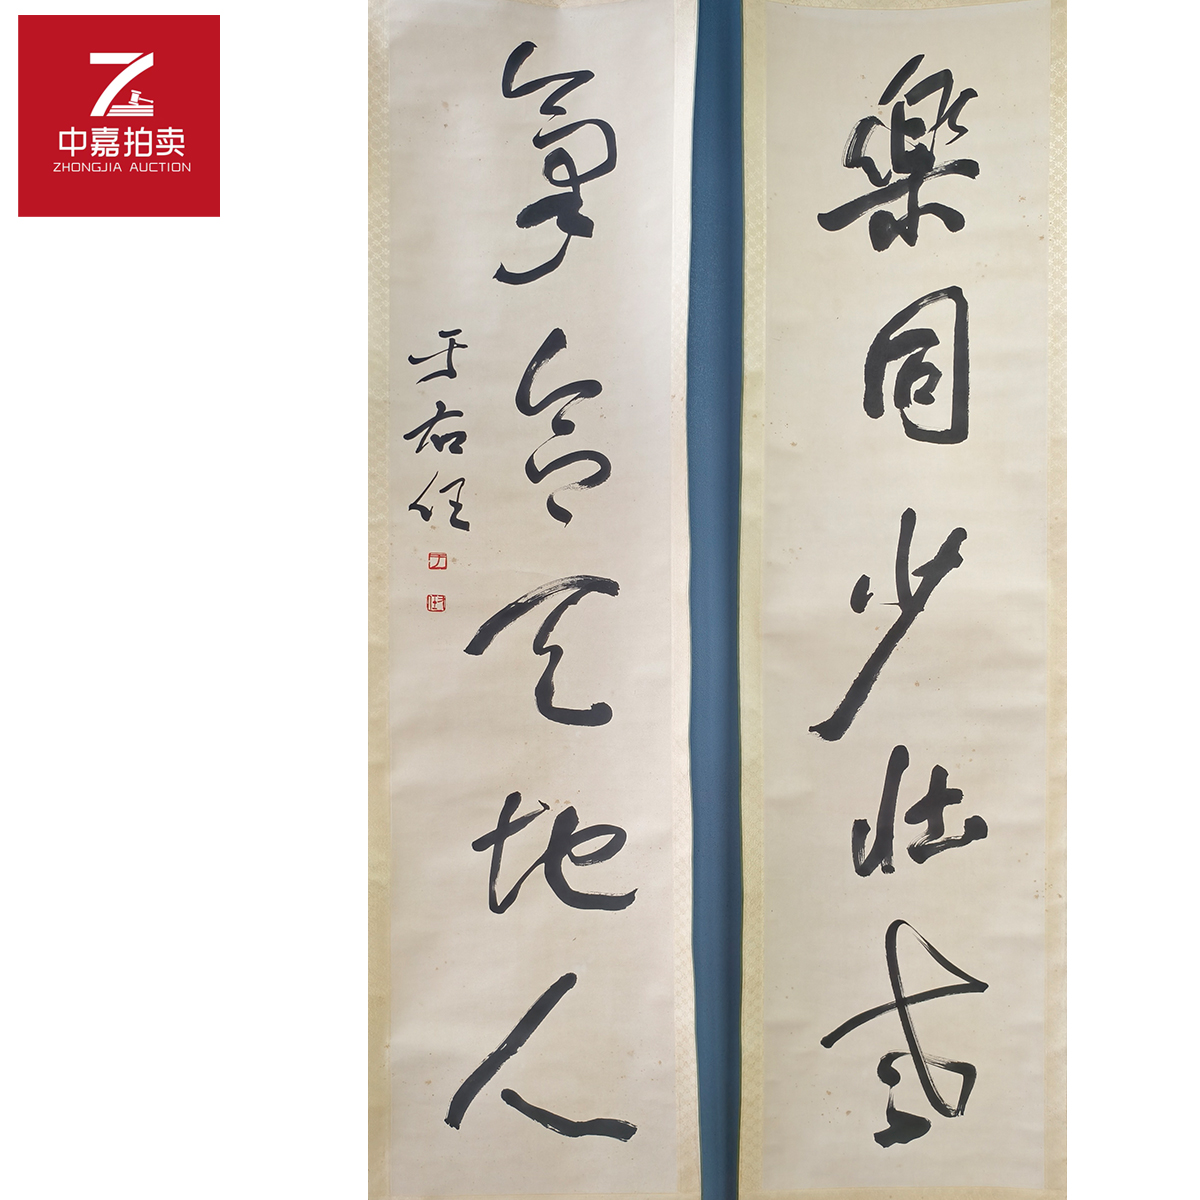 中嘉拍卖
ZHONGJIA AUCTION
樂同少壯老
天地人
于右任